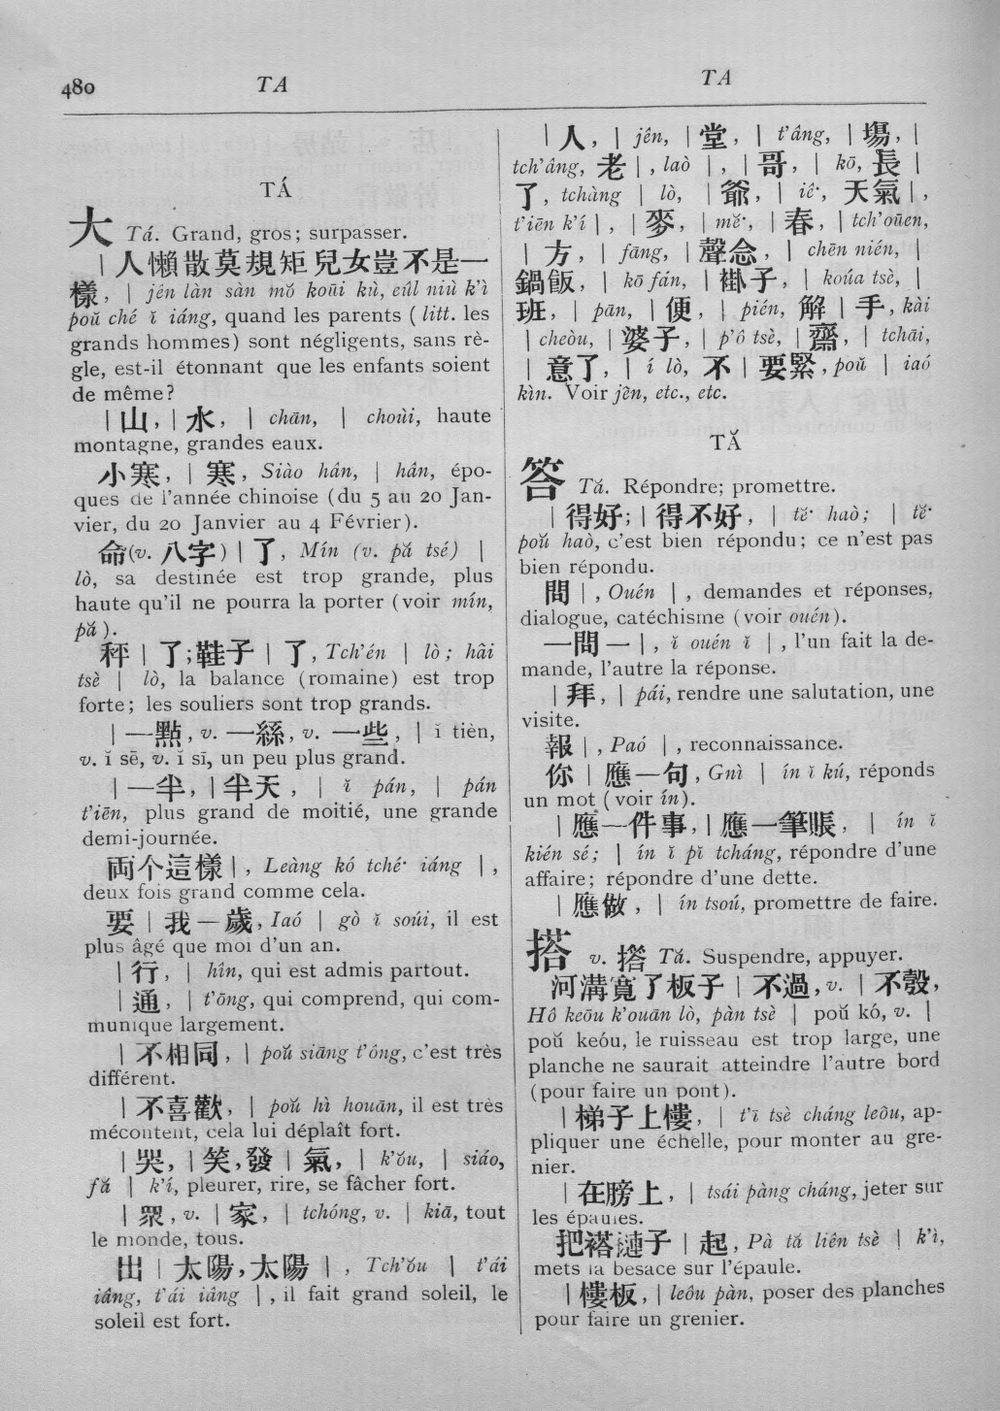 480
TA
TA
TÁ
大 Tá. Grand, gros; surpasser.
| 人懶散莫規矩兒女豈不是一
樣, | jên làn sàn mǒ koūi kù, eûl niù k'ì
poǔ ché ǐ iáng, quand les parents (litt. les
grands hommes) sont négligents, sans rè-
gle, est-il étonnant que les enfants soient
de même?
| 山, | 水, | chān, | choùi, haute
montagne, grandes eaux.
小寒, | 寒, Siào hân, | hân, épo-
ques de l'année chinoise (du 5 au 20 Jan-
vier, du 20 Janvier au 4 Février).
命(v. 八字) | 了, Mín (v. pǎ tsé) |
lò, sa destinée est trop grande, plus
haute qu'il ne pourra la porter (voir mín,
pǎ).
秤 | 了; 鞋子 | 了, Tch'én | lò; hâi
tsè | lò, la balance (romaine) est trop
forte; les souliers sont trop grands.
| 一點, v. 一絲, v. 一些, | ǐ tièn,
v. ǐ sē, v. ǐ sī, un peu plus grand.
| 一半, | 半天, | ǐ pán, | pán
t'iēn, plus grand de moitié, une grande
demi-journée.
両个這樣 | , Leàng kó tché· iáng | ,
deux fois grand comme cela.
要 | 我一歲, Iaó | gò ǐ soúi, il est
plus âgé que moi d'un an.
| 行, | hîn, qui est admis partout.
| 通, | t'ōng, qui comprend, qui com-
munique largement.
| 不相同, | poǔ siāng t'óng, c'est très
différent.
| 不喜歡, | poǔ hì houān, il est très
mécontent, cela lui déplaît fort.
| 哭, | 笑, 發 | 氣, | k'ǒu, | siáo,
fǎ | k'í, pleurer, rire, se fâcher fort.
| 眾, v. | 家, | tchóng, v. | kiā, tout
le monde, tous.
出 | 太陽, 太陽 | , Tch'ǒu | t'ái
iâng, t'ái iâng | , il fait grand soleil, le
soleil est fort.
| 人, | jên, | 堂, | t'âng, | 塲, |
tch'âng, 老 | , laò | , | 哥, | kō, 長 |
了, tchàng | lò, | 爺, | iê·, 天氣 | ,
t'iēn k'í | , | 麥, | mě·, | 春, | tch'oūen,
| 方, | fāng, | 聲念, | chēn nién, |
鍋飯, | kō fán, | 褂子, | koúa tsè, |
班, | pān, | 便, | pién, 解 | 手, kài
| cheòu, | 婆子, | p'ô tsè, | 齋, | tchāi,
| 意了, | í lò, 不 | 要緊, poǔ | iaó
kìn. Voir jên, etc., etc.
TǍ
答 Tǎ. Répondre; promettre.
| 得好; | 得不好, | tě· haò; | tě·
poǔ haò, c'est bien répondu; ce n'est pas
bien répondu.
問 | , Ouén | , demandes et réponses,
dialogue, catéchisme (voir ouén).
一問一 | , ǐ ouén ǐ | , l'un fait la de-
mande, l'autre la réponse.
| 拜, | pái, rendre une salutation, une
visite.
報 | , Paó | , reconnaissance.
你 | 應一句, Gnì | ín ǐ kú, réponds
un mot (voir ín).
| 應一件事, | 應一筆賬, | ín ǐ
kién sé; | ín ǐ pǐ tcháng, répondre d'une
affaire; répondre d'une dette.
| 應做, | ín tsoú, promettre de faire.
搭 v. 撘 Tǎ. Suspendre, appuyer.
河溝寬了板子 | 不過, v. | 不彀,
Hô keōu k'ouān lò, pàn tsè | poǔ kó, v. |
poǔ keóu, le ruisseau est trop large, une
planche ne saurait atteindre l'autre bord
(pour faire un pont).
| 梯子上樓, | t'ī tsè cháng leôu, ap-
pliquer une échelle, pour monter au gre-
nier.
| 在膀上, | tsái pàng cháng, jeter sur
les épaules.
把褡褳子 | 起, Pà tá liên tsè | k'ì,
mets la besace sur l'épaule.
| 樓板, | leôu pàn, poser des planches
pour faire un grenier.